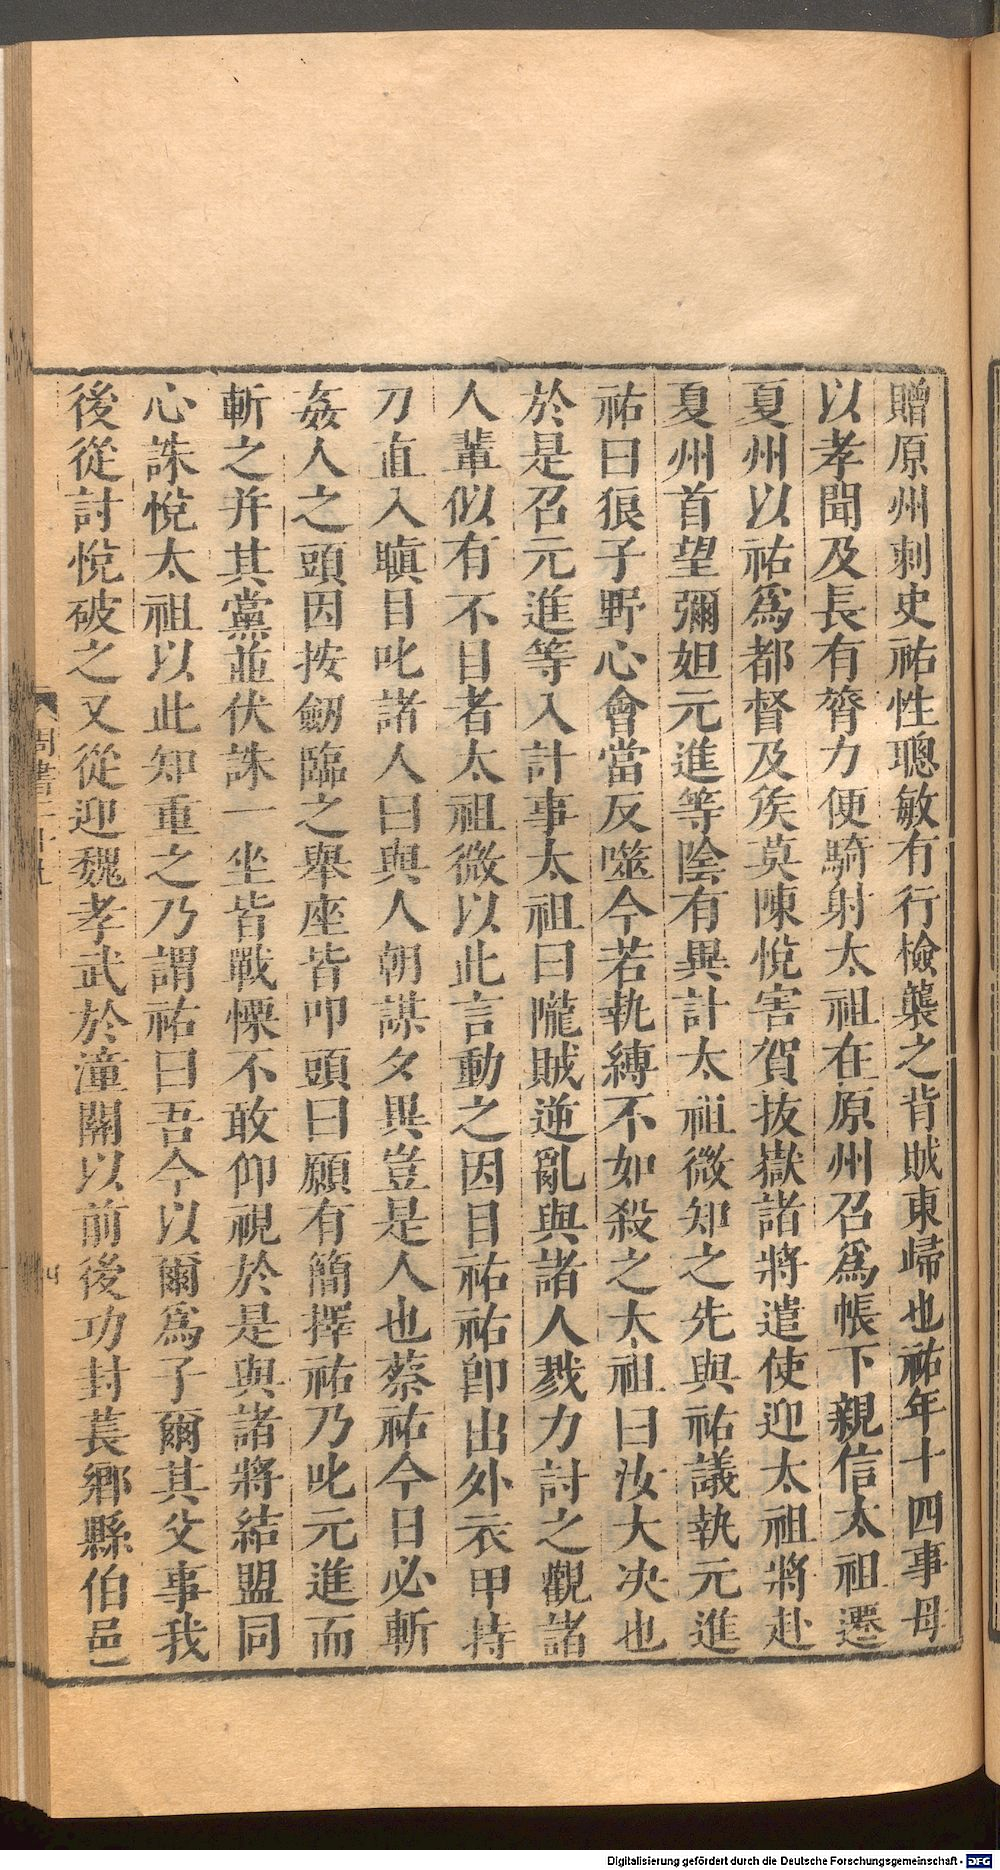 贈原州刺史祐性聰敏有行檢襲之背賊東歸也祐年十四事母
以孝聞及長有膂力便騎射太祖在原州召爲帳下親信太祖遷
夏州以祐爲都督及矦莫陳悅害賀拔嶽諸將遣使迎太祖將赴
夏州首望彌姐元進等陰有異計太祖微知之先與祐議執元進
祐曰狼子野心會當反噬今若執縛不如殺之太祖曰汝大决也
於是召元進等入計事太祖曰隴賊逆亂與諸人戮力討之觀諸
人輩似有不目者太祖微以此言動之因目祐祐卽出外衣甲持
刀直入瞋目叱諸人曰與人朝謀夕異豈是人也蔡祐今日必斬
姦人之頭因按劒臨之舉座皆叩頭曰願有簡擇祐乃叱元進而
斬之并其黨並伏誅一坐皆戰慄不敢仰視於是與諸將結盟同
心誅悅太祖以此知重之乃謂祐曰吾今以爾爲子爾其父事我
後從討悅破之又從迎魏孝武於潼關以前後功封萇鄉縣伯邑
Digitalisierung gefördert durch die Deutsche Forschungsgemeinschaft - DFG